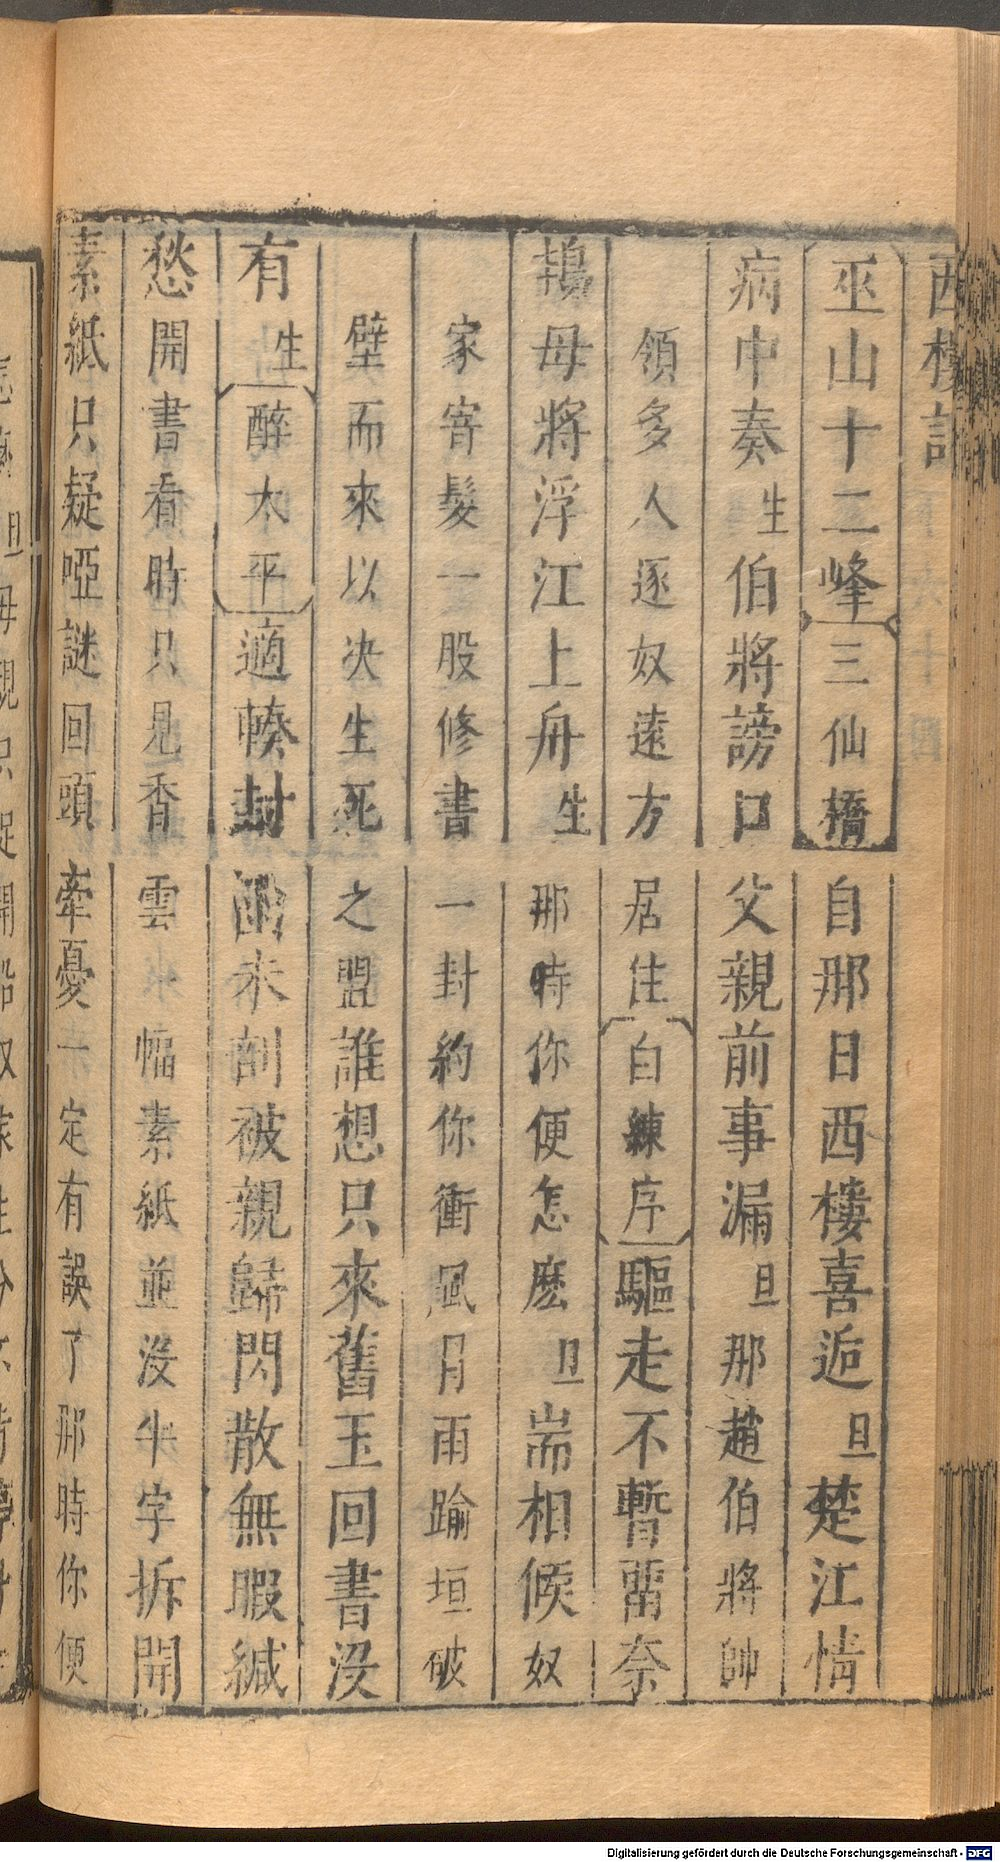 西樓記
巫山十二峰三仙橋自那日西樓喜逅旦楚江情
病中奏生伯將謗口父親前事漏旦那趙伯將帥
領多人逐奴遠方居住白練序驅走不暫畱奈
鴇母將浮江上舟生那時你便怎麽旦耑相候奴
家寄髮一股修書一封約你衝風冐雨踰垣破
壁而來以决生死之盟誰想只來舊玉回書没
有生醉太平適輳封函未剖被親歸閃散無暇緘
愁開書看時只見香雲 幅素紙並没半字拆開
素紙只疑啞謎回頭牽憂一定有誤了那時你便
旦母親只促開船奴
Digitalisierung gefördert durch die Deutsche Forschungsgemeinschaft - DFG